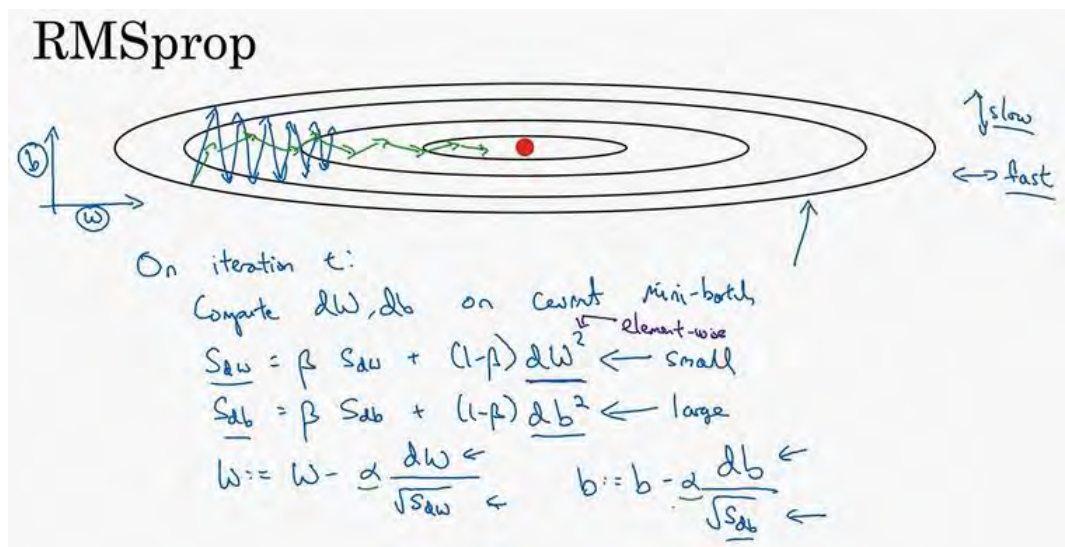 RMSprop
slow
fast
b
w
On iteration t:
Compute dW, db on current mini-batch
element-wise
Sdw = β Sdw + (1-β) dW² ← small
Sdb = β Sdb + (1-β) db² ← large
W := W - α dW/√Sdw ← b := b - α db/√Sdb ←